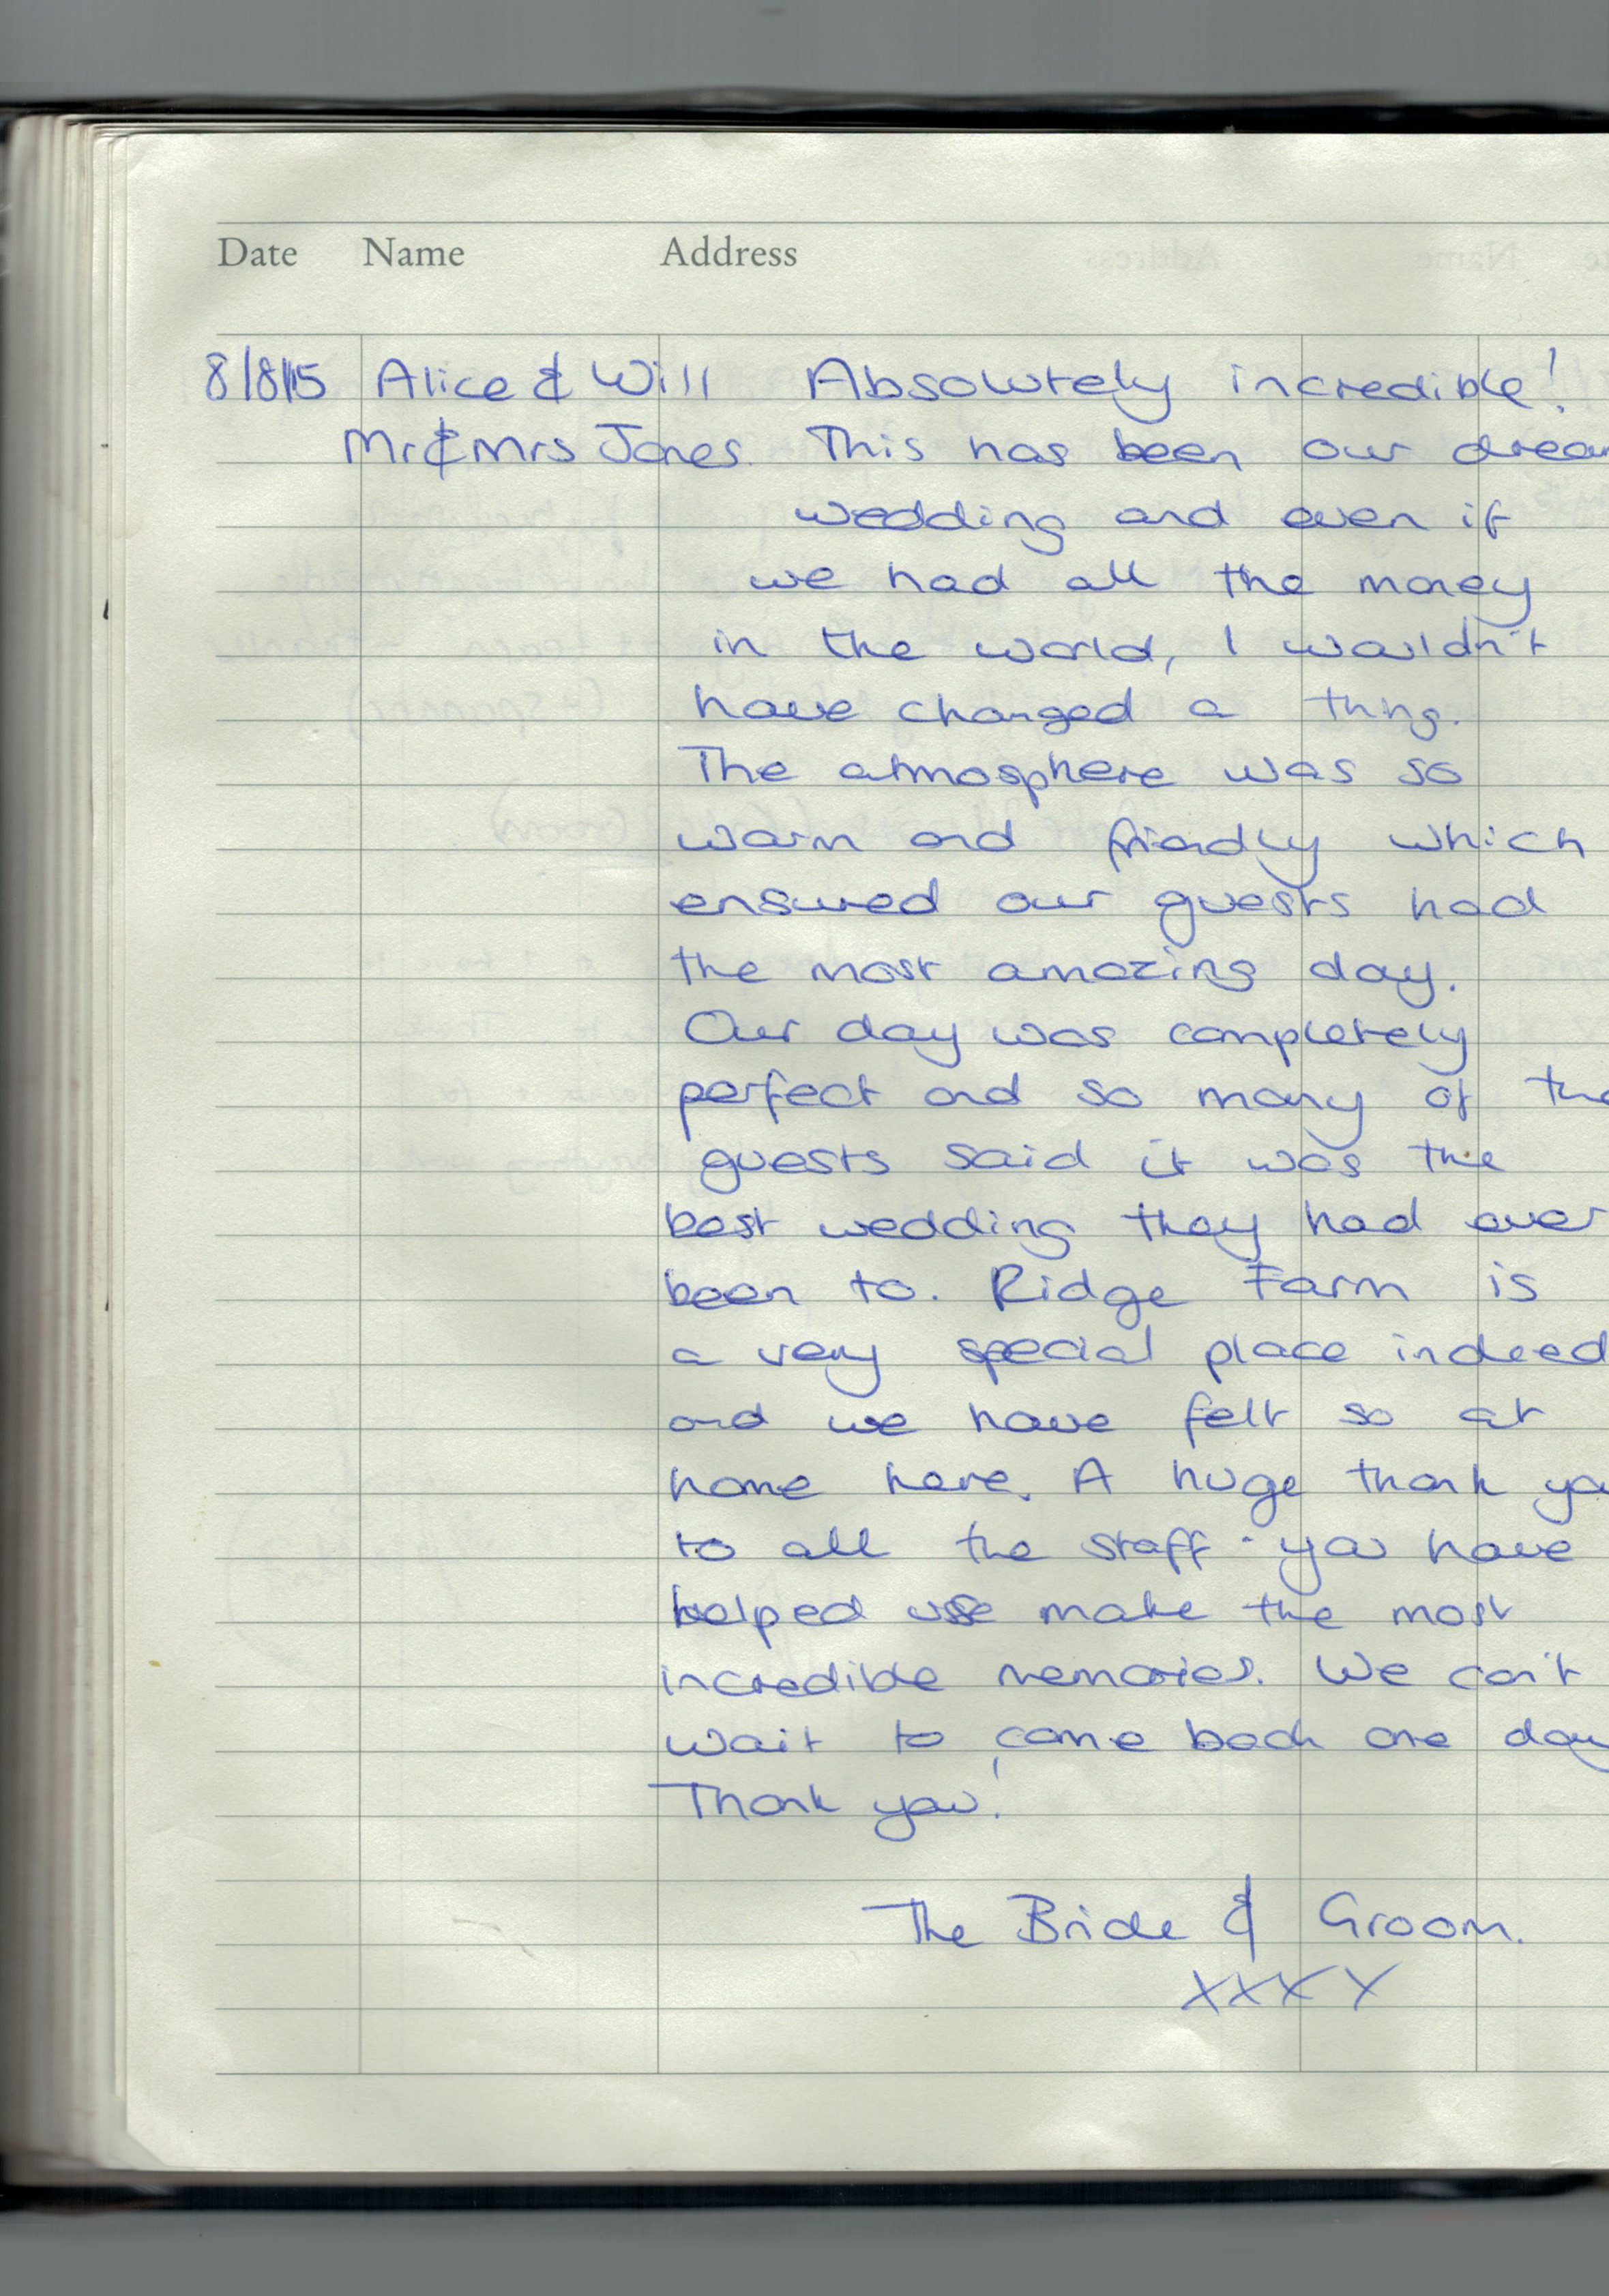 Date Name Address
8/8/15 Alice & Will Absolutely incredible!
Mr & Mrs Jones. This has been our dream
wedding and even if
we had all the money
in the world, I wouldn't
have changed a thing.
The atmosphere was so
warm and friendly which
ensured our guests had
the most amazing day.
Our day was completely
perfect and so many of the
guests said it was the
best wedding they had ever
been to. Ridge Farm is
a very special place indeed
and we have felt so at
home here. A huge thank you
to all the staff - you have
helped use make the most
incredible memories. We can't
wait to come back one day
Thank you!
The Bride & Groom.
xxxx